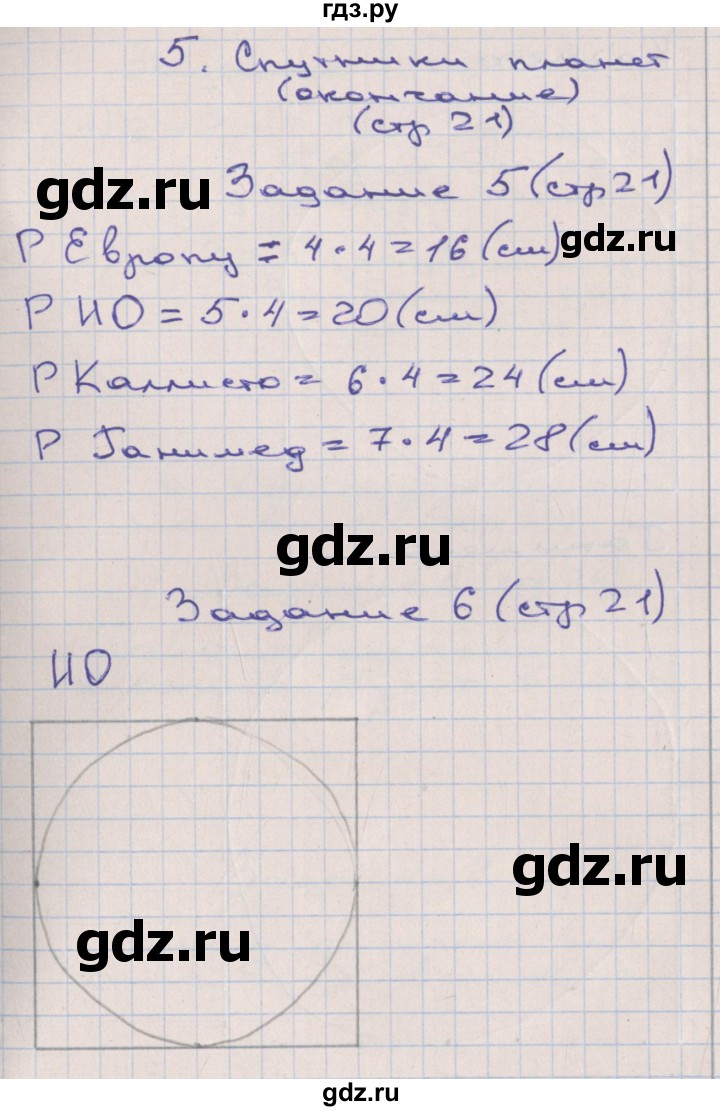 гдз.ру
5. Спутники планет
(окончание)
(стр 21)
gdz.ru Задание 5 (стр 21)
Р Европу = 4·4=16 (см) gdz.ru
Р ИО = 5·4=20 (см)
Р Каллисто = 6·4=24 (см)
Р Ганимед = 7·4=28 (см)
gdz.ru
Задание 6 (стр 21)
ИО
gdz.ru
gdz.ru
gdz.ru